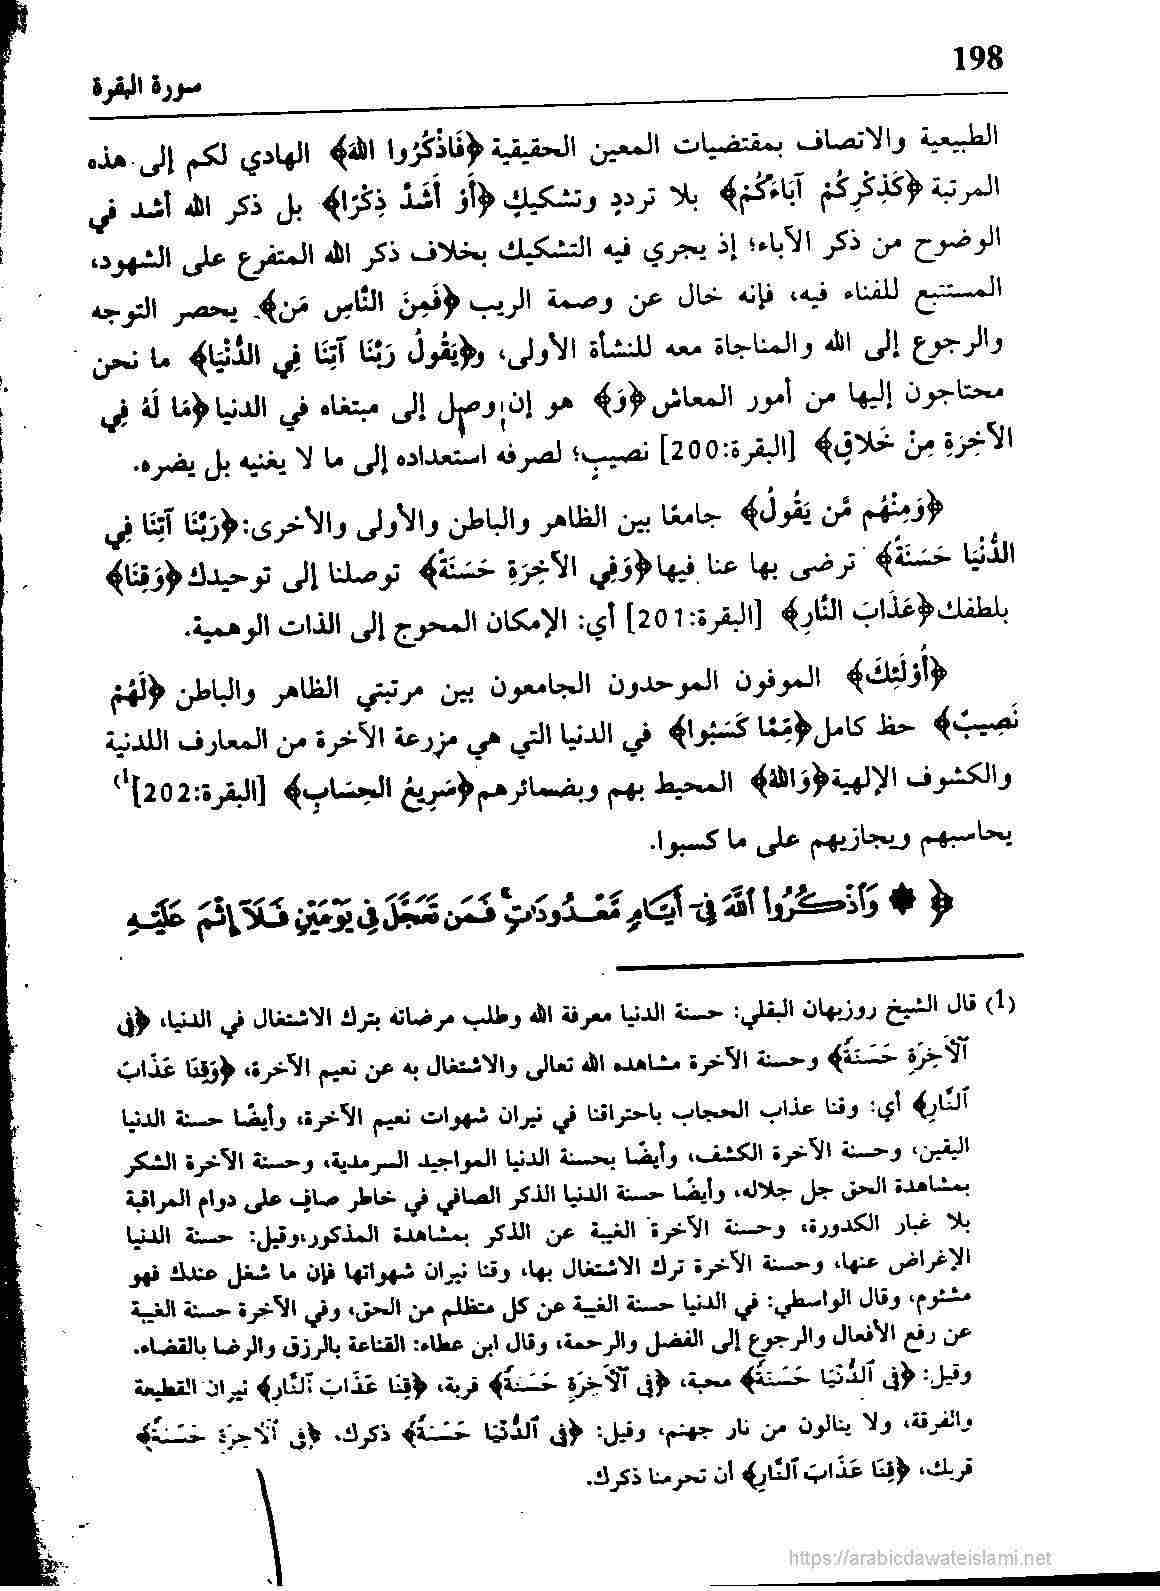 198
سورة البقرة
الطبيعية والاتصاف بمقتضيات المعين الحقيقية ﴿فَاذْكُرُوا اللهَ﴾ الهادي لكم إلى هذه
المرتبة ﴿كَذِكْرِكُمْ آبَاءَكُمْ﴾ بلا ترددٍ وتشكيكٍ ﴿أَوْ أَشَدَّ ذِكْرًا﴾ بل ذكر الله أشد في
الوضوح من ذكر الآباء؛ إذ يجري فيه التشكيك بخلاف ذكر الله المتفرع على الشهود،
المستتبع للفناء فيه، فإنه خال عن وصمة الريب ﴿فَمِنَ النَّاسِ مَن﴾ يحصر التوجه
والرجوع إلى الله والمناجاة معه للنشأة الأولى، و﴿يَقُولُ رَبَّنَا آتِنَا فِي الدُّنْيَا﴾ ما نحن
محتاجون إليها من أمور المعاش ﴿وَ﴾ هو إن وصل إلى مبتغاه في الدنيا ﴿مَا لَهُ فِي
الآخِرَةِ مِنْ خَلاقٍ﴾ [البقرة:200] نصيبٍ؛ لصرفه استعداده إلى ما لا يغنيه بل يضره.
﴿وَمِنْهُم مَّن يَقُولُ﴾ جامعًا بين الظاهر والباطن والأولى والأخرى: ﴿رَبَّنَا آتِنَا فِي
الدُّنْيَا حَسَنَةً﴾ ترضى بها عنا فيها ﴿وَفِي الآخِرَةِ حَسَنَةً﴾ توصلنا إلى توحيدك ﴿وَقِنَا﴾
بلطفك ﴿عَذَابَ النَّارِ﴾ [البقرة:201] أي: الإمكان المحوج إلى الذات الوهمية.
﴿أُوْلَئِكَ﴾ الموفون الموحدون الجامعون بين مرتبتي الظاهر والباطن ﴿لَهُمْ
نَصِيبٌ﴾ حظ كامل ﴿مِّمَّا كَسَبُوا﴾ في الدنيا التي هي مزرعة الآخرة من المعارف اللدنية
والكشوف الإلهية ﴿وَاللهُ﴾ المحيط بهم وبضمائرهم ﴿سَرِيعُ الحِسَابِ﴾ [البقرة:202](1)
يحاسبهم ويجازيهم على ما كسبوا.
﴿ ۞ وَٱذْكُرُوا۟ ٱللَّهَ فِىٓ أَيَّامٍ مَّعْدُودَٰتٍ ۚ فَمَن تَعَجَّلَ فِى يَوْمَيْنِ فَلَآ إِثْمَ عَلَيْهِ
(1) قال الشيخ روزبهان البقلي: حسنة الدنيا معرفة الله وطلب مرضاته بترك الاشتغال في الدنيا، ﴿فِى
ٱلْأَخِرَةِ حَسَنَةً﴾ وحسنة الآخرة مشاهده الله تعالى والاشتغال به عن نعيم الآخرة، ﴿وَقِنَا عَذَابَ
ٱلنَّارِ﴾ أي: وقنا عذاب الحجاب باحتراقنا في نيران شهوات نعيم الآخرة، وأيضًا حسنة الدنيا
اليقين، وحسنة الآخرة الكشف، وأيضًا بحسنة الدنيا المواجيد السرمدية، وحسنة الآخرة الشكر
بمشاهدة الحق جل جلاله، وأيضًا حسنة الدنيا الذكر الصافي في خاطر صافٍ على دوام المراقبة
بلا غبار الكدورة، وحسنة الآخرة الغيبة عن الذكر بمشاهدة المذكور،وقيل: حسنة الدنيا
الإغراض عنها، وحسنة الآخرة ترك الاشتغال بها، وقنا نيران شهواتها فإن ما شغل عندك فهو
مشئوم، وقال الواسطي: في الدنيا حسنة الغيبة عن كل متظلم من الحق، وفي الآخرة حسنة الغيبة
عن رفع الأفعال والرجوع إلى الفضل والرحمة، وقال ابن عطاء: القناعة بالرزق والرضا بالقضاء.
وقيل: ﴿فِى ٱلدُّنْيَا حَسَنَةً﴾ محبة، ﴿فِى ٱلْأَخِرَةِ حَسَنَةً﴾ قربة، ﴿قِنَا عَذَابَ ٱلنَّارِ﴾ نيران القطيعة
والفرقة، ولا ينالون من نار جهنم، وقيل: ﴿فِى ٱلدُّنْيَا حَسَنَةً﴾ ذكرك، ﴿فِى ٱلْأَخِرَةِ حَسَنَةً﴾
قربك، ﴿قِنَا عَذَابَ ٱلنَّارِ﴾ أن تحرمنا ذكرك.
https://arabicdawateislami.net